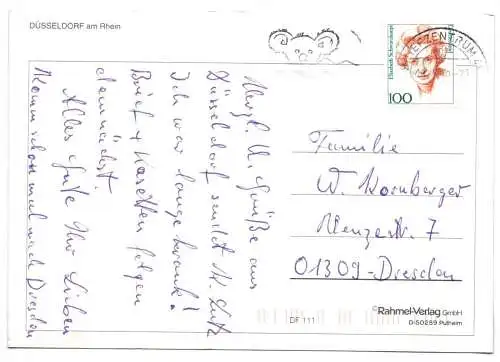 DÜSSELDORF am Rhein
Herzl. U. Grüße aus
Düsseldorf sendet
Ich war lange krank!
Brief + Kasetten folgen
demnächst!
Alles Gute Ihr Lieben
Komm schon mal nach Dresden
Elisabeth Schwarzhaupt
100
BRIEFZENTRUM 4
Familie
W. Kornberger
Menzestr. 7
01309-Dresden
DF 111
©Rahmel-Verlag GmbH
D-50259 Pulheim